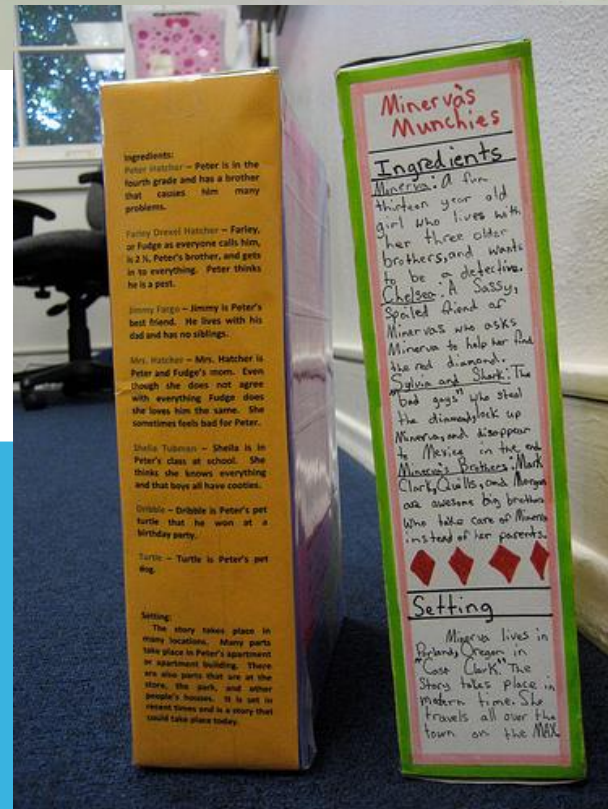 Ingredients:
Peter Hatcher – Peter is in the
fourth grade and has a brother
that causes him many
problems.
Farley Drexel Hatcher – Farley,
or Fudge as everyone calls him,
is 2 ½, Peter's brother, and gets
in to everything. Peter thinks
he is a pest.
Jimmy Fargo – Jimmy is Peter's
best friend. He lives with his
dad and has no siblings.
Mrs. Hatcher – Mrs. Hatcher is
Peter and Fudge's mom. Even
though she does not agree
with everything Fudge does
she loves him the same. She
sometimes feels bad for Peter.
Sheila Tubman – Sheila is in
Peter's class at school. She
thinks she knows everything
and that boys all have cooties.
Dribble – Dribble is Peter's pet
turtle that he won at a
birthday party.
Turtle – Turtle is Peter's pet
dog.
Setting:
The story takes place in
many locations. Many parts
take place in Peter's apartment
or apartment building. There
are also parts that are at the
store, the park, and other
people's houses. It is set in
recent times and is a story that
could take place today.
Minerva's
Munchies
Ingredients
Minerva: A fun
thirteen year old
girl who lives with
her three older
brothers, and wants
to be a detective.
Chelsea: A Sassy,
spoiled friend of
Minervas who asks
Minerva to help her find
the red diamond.
Sylvia and Shark: The
"bad guys" who steal
the diamond, lock up
Minerva, and disappear
to Mexico in the end
Minerva's Brothers: Mark
Clark, Quills, and Morgan
are awesome big brothers
who take care of Minerva
instead of her parents.
Setting
Minerva lives in
Portland, Oregon in
"Case Clark." The
Story takes place in
modern time. She
travels all over the
town on the MAX